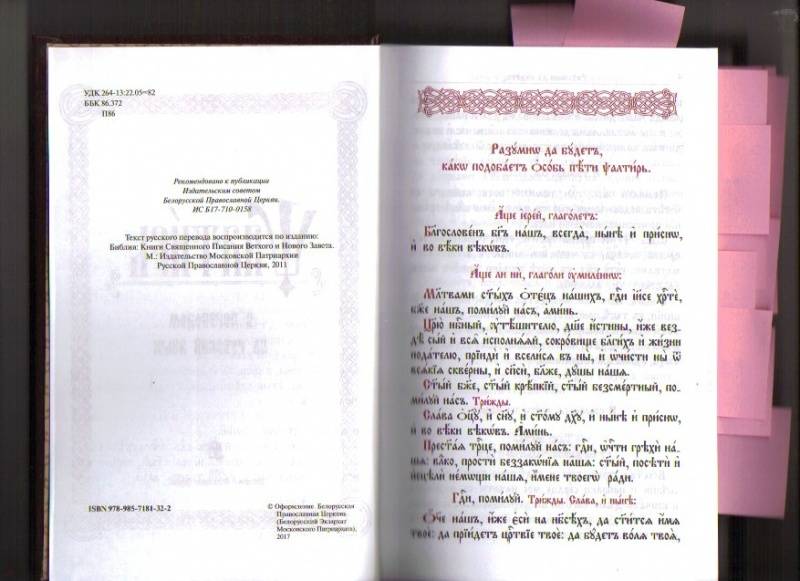 УДК 264-13:22.05=82
ББК 86.372
П86
Рекомендовано к публикации
Издательским советом
Белорусской Православной Церкви.
ИС Б17-710-0158
Текст русского перевода воспроизводится по изданию:
Библия: Книги Священного Писания Ветхого и Нового Завета.
М.: Издательство Московской Патриархии
Русской Православной Церкви, 2011
ISBN 978-985-7181-32-2
© Оформление Белорусская
Православная Церковь
(Белорусский Экзархат
Московского Патриархата),
2017
Разꙋ́мно да бꙋ́детъ,
ка́кѡ подоба́етъ ѻ҆со́бь пѣ́ти ѱалти́рь.
А҆́ще і҆ере́й, глаго́летъ:
Бл҃гослове́нъ бг҃ъ на́шъ, всегда̀, ны́нѣ и҆ при́снѡ,
и҆ во вѣ́ки вѣкѡ́въ.
А҆́ще ли нѝ, глаго́ли ᲂу҆миле́ннѡ:
Мл҃твами ст҃ы́хъ ѻ҆тє́цъ на́шихъ, гдⷭ҇и і҆и҃се хрⷭ҇тѐ,
бж҃е на́шъ, поми́лꙋй на́съ, а҆ми́нь.
Цр҃ю̀ нбⷭ҇ный, ᲂу҆тѣ́шителю, дш҃е и҆́стины, и҆́же вез-
дѣ̀ сы́й и҆ всѧ̑ и҆сполнѧ́ѧй, сокро́вище бл҃ги́хъ и҆ жи́зни
пода́телю, прїидѝ и҆ всели́сѧ въ ны̀, и҆ ѡ҆чи́сти ны̀ ѿ
всѧ́кїѧ скве́рны, и҆ сп҃сѝ, бл҃же, дꙋ́шы на́шѧ.
Ст҃ы́й бж҃е, ст҃ы́й крѣ́пкїй, ст҃ы́й безсме́ртный, по-
ми́лꙋй на́съ. Три́жды.
Сла́ва ѻ҆ц҃ꙋ̀, и҆ сн҃ꙋ, и҆ ст҃о́мꙋ дх҃ꙋ, и҆ ны́нѣ и҆ при́снѡ,
и҆ во вѣ́ки вѣкѡ́въ. А҆ми́нь.
Прест҃а́ѧ трⷪ҇це, поми́лꙋй на́съ: гдⷭ҇и, ѡ҆чⷭ҇ти грѣхѝ на́-
шѧ: влⷣко, простѝ беззакѡ́нїѧ на̑ша: ст҃ы́й, посѣтѝ и҆
и҆сцѣлѝ не́мѡщи на́шѧ, и҆́мене твоегѡ̀ ра́ди.
Гдⷭ҇и, поми́лꙋй. Три́жды. Сла́ва, и҆ ны́нѣ:
Ѻ҆́ч҃е на́шъ, и҆́же є҆сѝ на нб҃сѣ́хъ, да ст҃и́тсѧ и҆́мѧ
твоѐ: да прїи́детъ црⷭ҇твїе твоѐ: да бꙋ́детъ во́лѧ твоѧ̀,